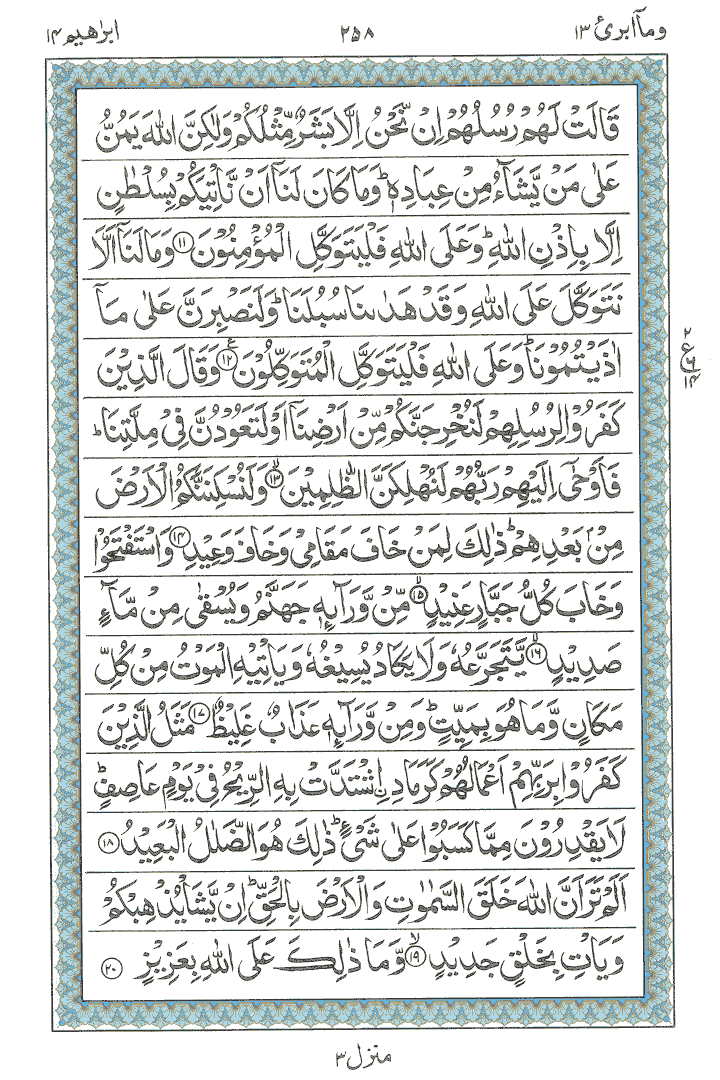 وماۤابرئ ۱۳ ۲۵۸ ابرٰهیم ۱۴
قَالَتْ لَهُمْ رُسُلُهُمْ اِنْ نَّحْنُ اِلَّا بَشَرٌ مِّثْلُكُمْ وَلٰكِنَّ اللّٰهَ يَمُنُّ
عَلٰى مَنْ يَّشَآءُ مِنْ عِبَادِهٖ ؕ وَمَا كَانَ لَنَاۤ اَنْ نَّاْتِيَكُمْ بِسُلْطٰنٍ
اِلَّا بِاِذْنِ اللّٰهِ ؕ وَعَلَى اللّٰهِ فَلْيَتَوَكَّلِ الْمُؤْمِنُوْنَ ۱۱ وَمَا لَنَاۤ اَلَّا
نَتَوَكَّلَ عَلَى اللّٰهِ وَقَدْ هَدٰىنَا سُبُلَنَا ؕ وَلَنَصْبِرَنَّ عَلٰى مَاۤ
اٰذَيْتُمُوْنَا ؕ وَعَلَى اللّٰهِ فَلْيَتَوَكَّلِ الْمُتَوَكِّلُوْنَ ۱۲ وَقَالَ الَّذِيْنَ
كَفَرُوْا لِرُسُلِهِمْ لَنُخْرِجَنَّكُمْ مِّنْ اَرْضِنَاۤ اَوْ لَتَعُوْدُنَّ فِيْ مِلَّتِنَا ؕ
فَاَوْحٰۤى اِلَيْهِمْ رَبُّهُمْ لَنُهْلِكَنَّ الظّٰلِمِيْنَ ۱۳ وَلَنُسْكِنَنَّكُمُ الْاَرْضَ
مِنْۢ بَعْدِهِمْ ؕ ذٰلِكَ لِمَنْ خَافَ مَقَامِيْ وَخَافَ وَعِيْدِ ۱۴ وَاسْتَفْتَحُوْا
وَخَابَ كُلُّ جَبَّارٍ عَنِيْدٍ ۱۵ مِّنْ وَّرَآئِهٖ جَهَنَّمُ وَيُسْقٰى مِنْ مَّآءٍ
صَدِيْدٍ ۱۶ يَّتَجَرَّعُهٗ وَلَا يَكَادُ يُسِيْغُهٗ وَيَاْتِيْهِ الْمَوْتُ مِنْ كُلِّ
مَكَانٍ وَّمَا هُوَ بِمَيِّتٍ ؕ وَمِنْ وَّرَآئِهٖ عَذَابٌ غَلِيْظٌ ۱۷ مَثَلُ الَّذِيْنَ
كَفَرُوْا بِرَبِّهِمْ اَعْمَالُهُمْ كَرَمَادِ ِ۟اشْتَدَّتْ بِهِ الرِّيْحُ فِيْ يَوْمٍ عَاصِفٍ ؕ
لَا يَقْدِرُوْنَ مِمَّا كَسَبُوْا عَلٰى شَيْءٍ ؕ ذٰلِكَ هُوَ الضَّلٰلُ الْبَعِيْدُ ۱۸
اَلَمْ تَرَ اَنَّ اللّٰهَ خَلَقَ السَّمٰوٰتِ وَالْاَرْضَ بِالْحَقِّ ؕ اِنْ يَّشَاْ يُذْهِبْكُمْ
وَيَاْتِ بِخَلْقٍ جَدِيْدٍ ۱۹ وَّمَا ذٰلِكَ عَلَى اللّٰهِ بِعَزِيْزٍ ۲۰
۲
ع
۶
۱۴
منزل ۳